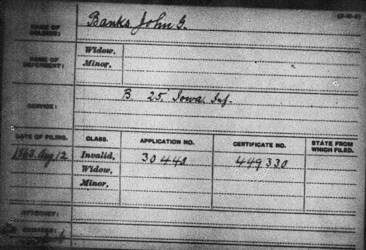 NAME OF SOLDIER: Banks, John G.
NAME OF DEPENDENT: Widow,
Minor,
SERVICE: B 25, Iowa Inf.
DATE OF FILING. CLASS. APPLICATION NO. CERTIFICATE NO. STATE FROM WHICH FILED.
1863 Aug 12 Invalid, 30440 449330
Widow,
Minor,
ATTORNEY:
REMARKS: